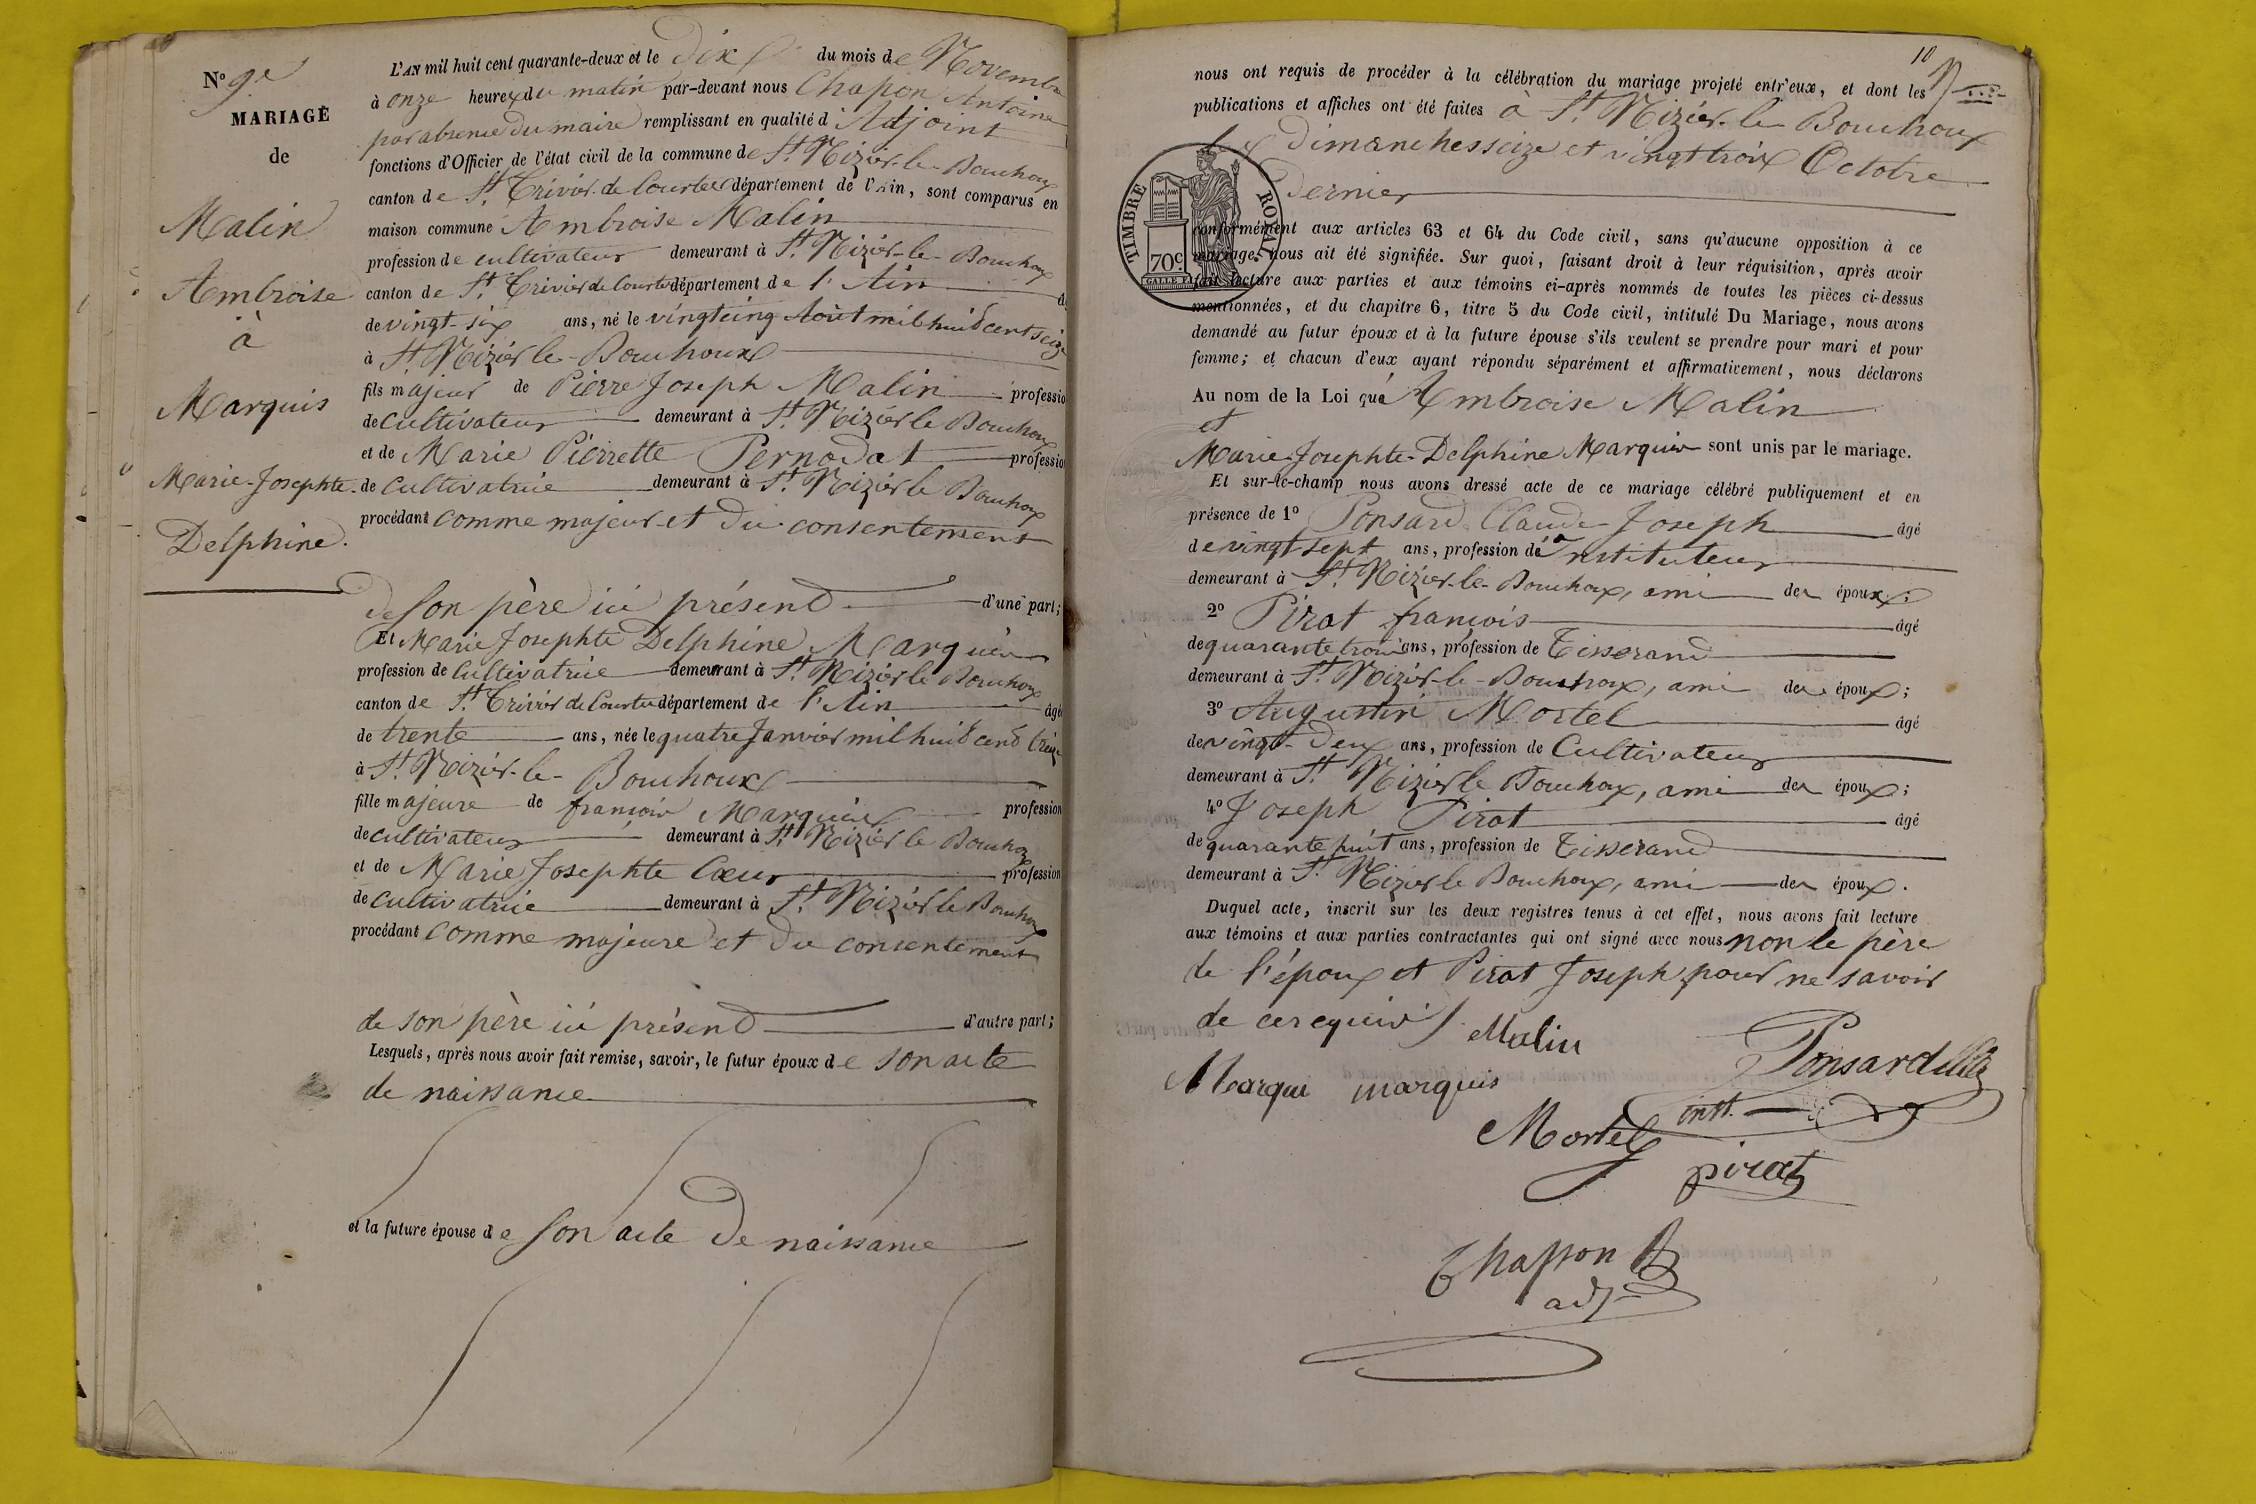 N° 9e
MARIAGE
de
Malin
Ambroise
à
Marquis
Marie-Josephte
Delphine.
L'AN mil huit cent quarante-deux et le dix du mois de Novembre
à onze heures du matin par-devant nous Chapon Antoine
par absence du maire remplissant en qualité d'Adjoint
fonctions d'Officier de l'état civil de la commune de St. Nizier-le-Bouchoux
canton de St. Trivier de Courtes département de l'Ain, sont comparus en
maison commune Ambroise Malin
profession de cultivateur demeurant à St. Nizier-le-Bouchoux
canton de St. Trivier de Courtes département de l'Ain
de vingt-six ans, né le vingt cinq Août mil huit cent seize
à St. Nizier le-Bouchoux
fils majeur de Pierre Joseph Malin profession
de cultivateur demeurant à St. Nizier le Bouchoux
et de Marie Pierrette Pernodat profession
de cultivatrice demeurant à St. Nizier le Bouchoux
procédant comme majeur et du consentement
de son père ici présent d'une part;
Et Marie Josephte Delphine Marquis
profession de cultivatrice demeurant à St. Nizier le Bouchoux
canton de St. Trivier de Courtes département de l'Ain âgée
de trente ans, née le quatre Janvier mil huit cent treize
à St. Nizier-le-Bouchoux
fille majeure de françois Marquis profession
de cultivateur demeurant à St. Nizier le Bouchoux
et de Marie Josephte Cœur profession
de cultivatrice demeurant à St. Nizier le Bouchoux
procédant comme majeure et du consentement
de son père ici présent d'autre part;
Lesquels, après nous avoir fait remise, savoir, le futur époux de son acte
de naissance
et la future épouse de son acte de naissance
10
nous ont requis de procéder à la célébration du mariage projeté entr'eux, et dont les
publications et affiches ont été faites à St. Nizier-le-Bouchoux
les Dimanches seize et vingt trois Octobre
Dernier
TIMBRE ROYAL
70c.
conformément aux articles 63 et 64 du Code civil, sans qu'aucune opposition à ce
mariage nous ait été signifiée. Sur quoi, faisant droit à leur réquisition, après avoir
fait lecture aux parties et aux témoins ci-après nommés de toutes les pièces ci-dessus
mentionnées, et du chapitre 6, titre 5 du Code civil, intitulé Du Mariage, nous avons
demandé au futur époux et à la future épouse s'ils veulent se prendre pour mari et pour
femme; et chacun d'eux ayant répondu séparément et affirmativement, nous déclarons
Au nom de la Loi que Ambroise Malin
et
Marie-Josephte-Delphine Marquis sont unis par le mariage.
Et sur-le-champ nous avons dressé acte de ce mariage célébré publiquement et en
présence de 1° Ponsard Claude Joseph âgé
de vingt-sept ans, profession d'instituteur
demeurant à St. Nizier-le-Bouchoux, ami des époux;
2° Pirat françois âgé
de quarante trois ans, profession de Tisserand
demeurant à St. Nizier-le-Bouchoux, ami des époux;
3° Augustin Mortel âgé
de vingt-deux ans, profession de Cultivateur
demeurant à St. Nizier le Bouchoux, ami des époux;
4° Joseph Pirat âgé
de quarante huit ans, profession de Tisserand
demeurant à St. Nizier le Bouchoux, ami des époux.
Duquel acte, inscrit sur les deux registres tenus à cet effet, nous avons fait lecture
aux témoins et aux parties contractantes qui ont signé avec nous non le père
de l'époux et Pirat Joseph pour ne savoir
de ce requis
Malin
Ponsard
Marqui marquis
instt.
Mortel
pirat
Chapon A
adj